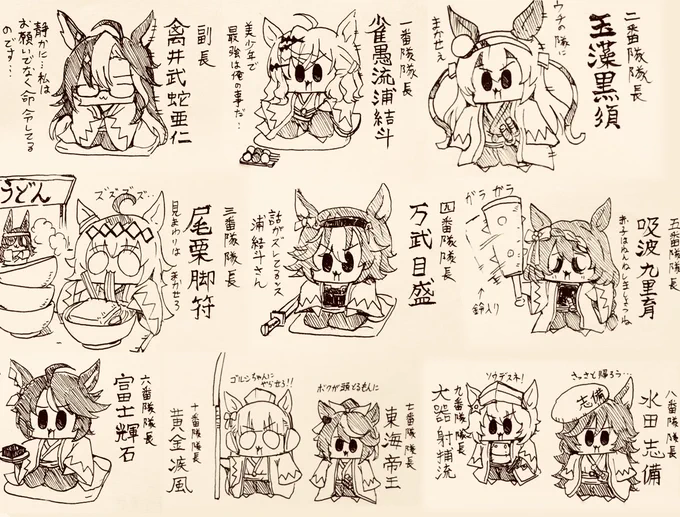 二番隊隊長
玉藻黒須
ウチの隊に
まかせえ
一番隊隊長
雀愚流浦結斗
美少年で
最強は俺の事だ…
副長
禽井武蛇亜仁
静かに…私は
お願いでなく命令してる
のです…
五番隊隊長
吸波九里育
ガラガラ
↑
鈴入り
四番隊隊長
万武目盛
話がズレとるッス
浦結斗さん
三番隊隊長
尾栗脚符
見まわりは
まかせろ
ズズズズ…
うどん
八番隊隊長
水田志備
さっさと帰ろう…
志備
九番隊隊長
大器射捕流
ソウデスネ!
七番隊隊長
東海帝王
ボクが頭とるもんに
十番隊隊長
黄金疾風
ゴルシちゃんに
やらせろ!!
六番隊隊長
富士輝石